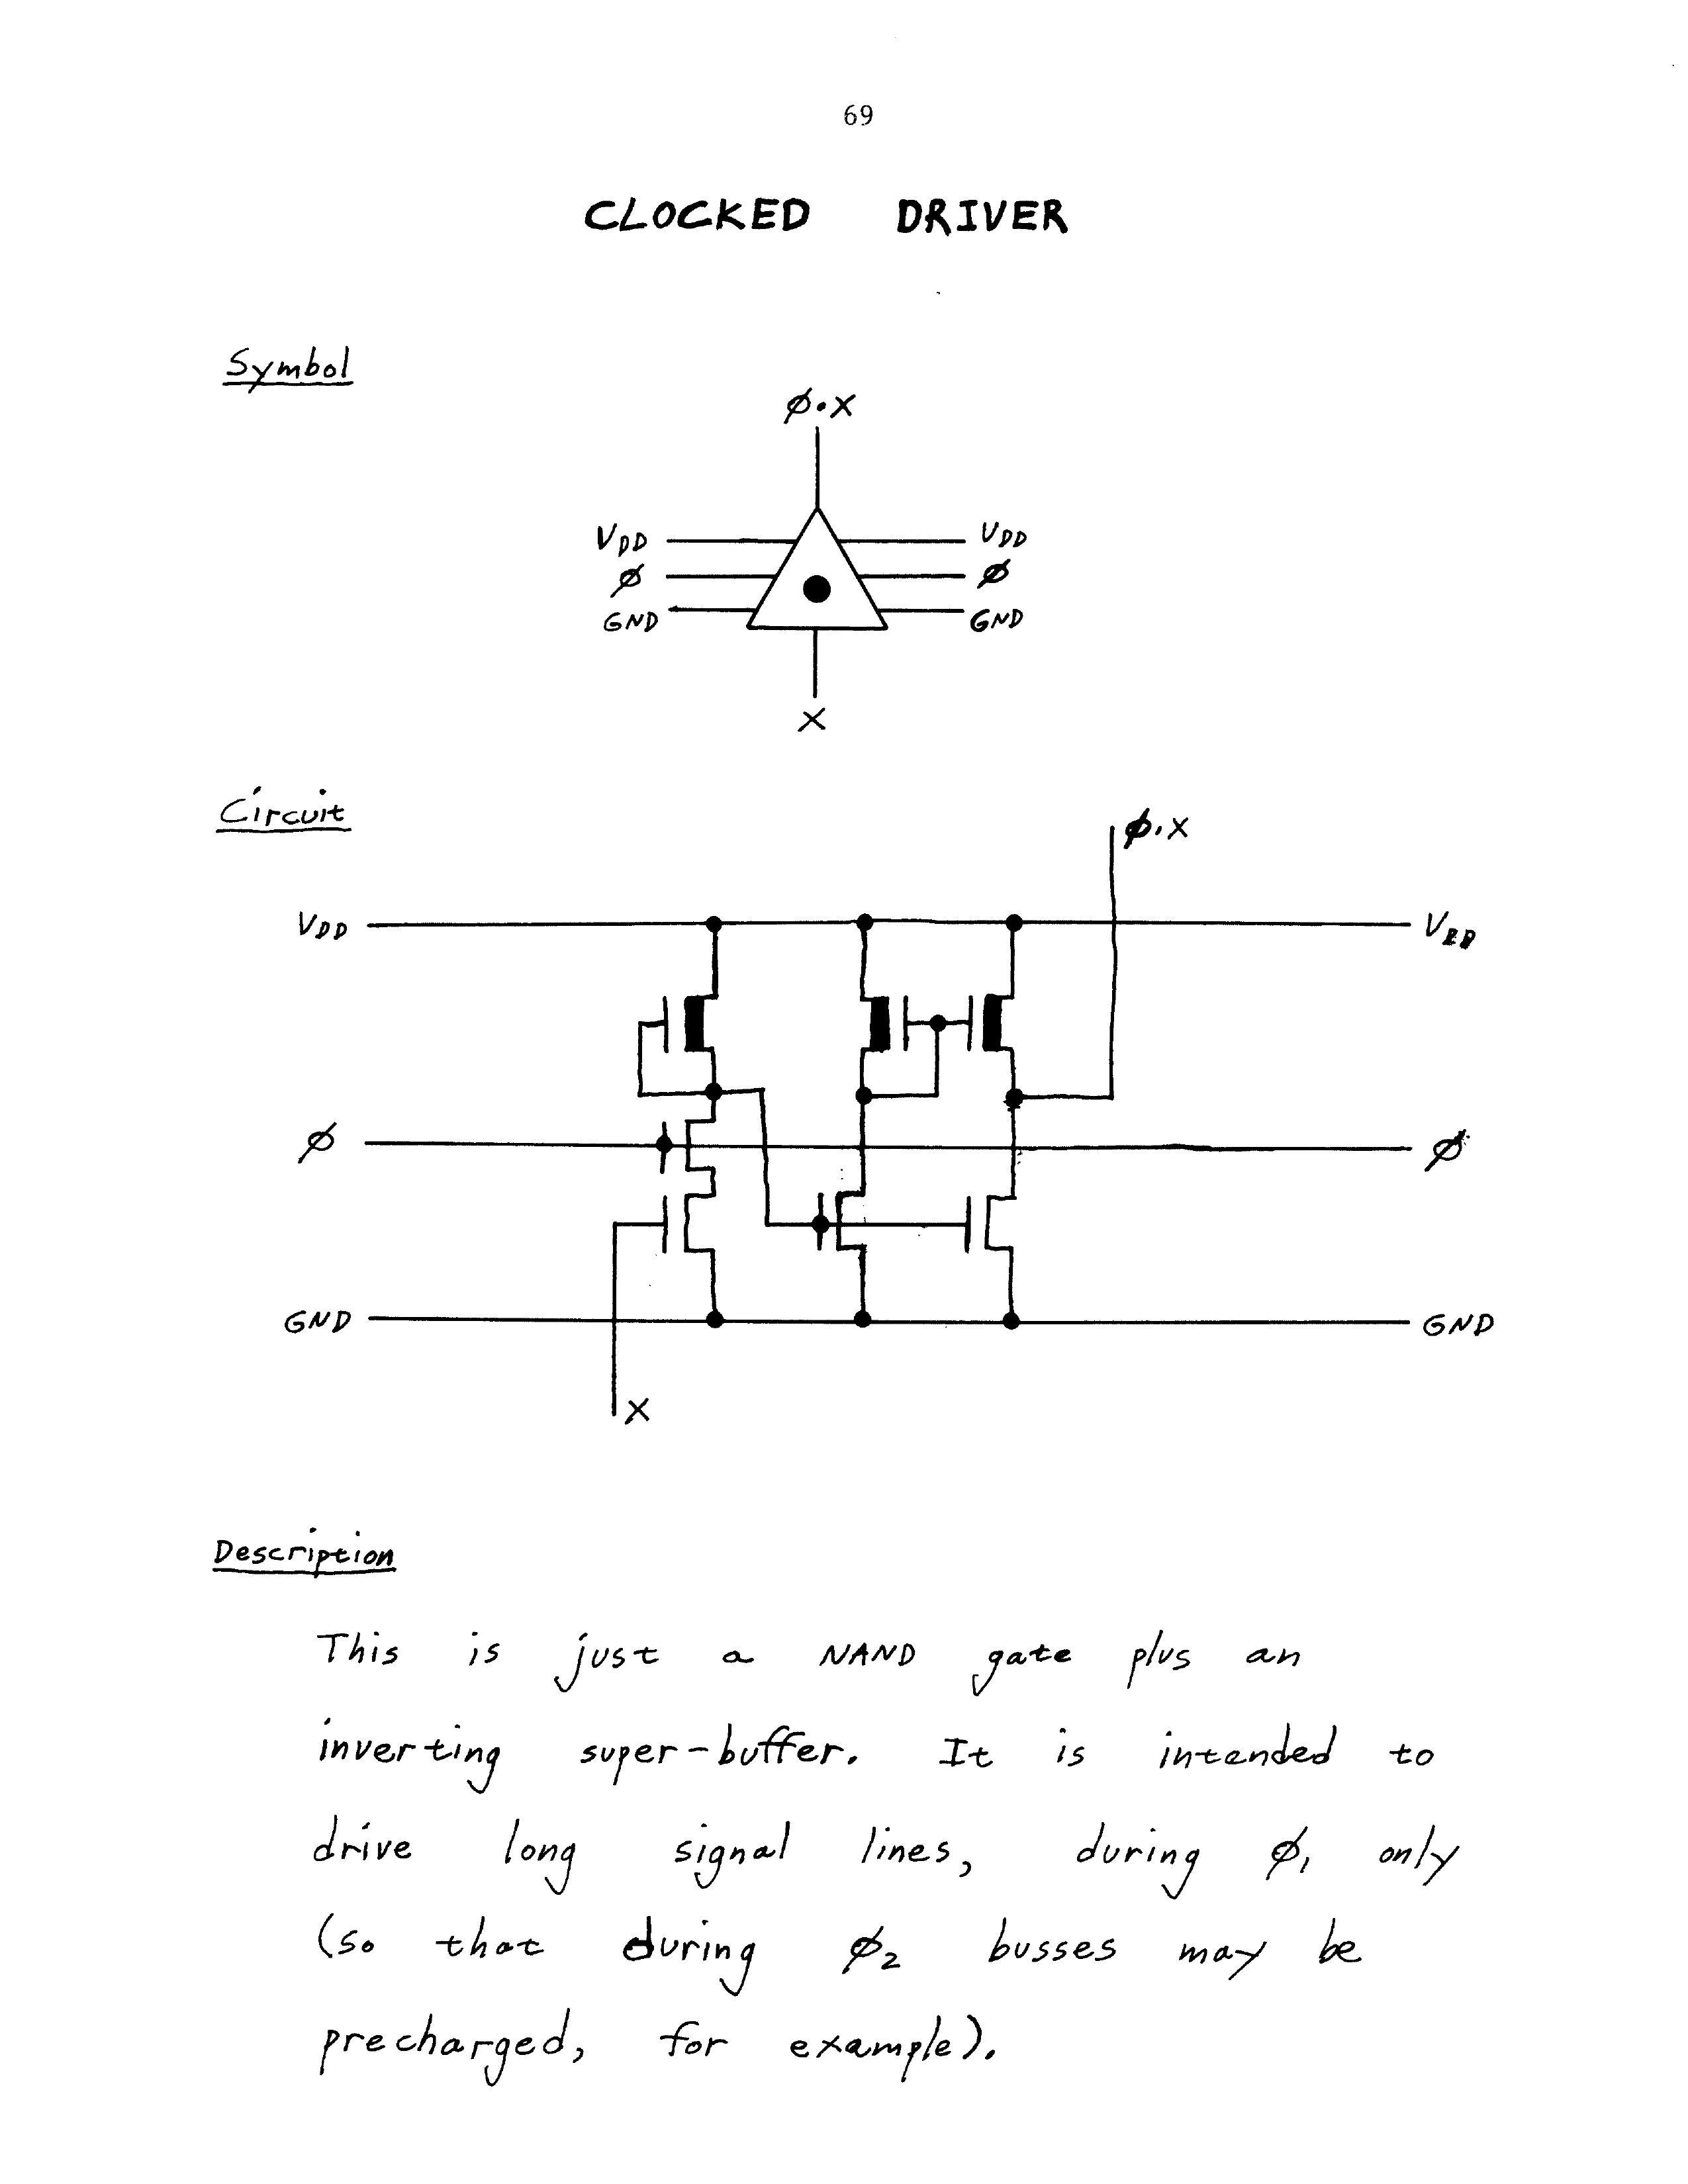 69
CLOCKED DRIVER
Symbol
φ·X
VDD VDD
φ φ
GND GND
X
Circuit
φ·X
VDD VDD
φ φ
GND GND
X
Description
This is just a NAND gate plus an
inverting super-buffer. It is intended to
drive long signal lines, during φ₁ only
(so that during φ₂ busses may be
precharged, for example).